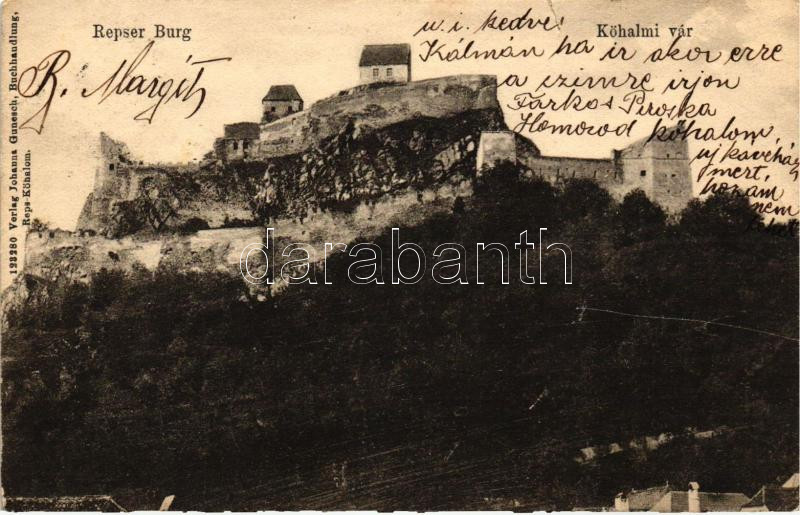 Repser Burg
Kőhalmi vár
122280 Verlag Johanna Gunesch, Buchhandlung,
Reps-Kőhalom.
R. Margit
u. i. kedve
Kálmán ha ir akor erre
a czimre irjon
Farkas Piroska
Homorod kőhalom,
uj kávéház
mert,
honam
nem
lehet
darabanth